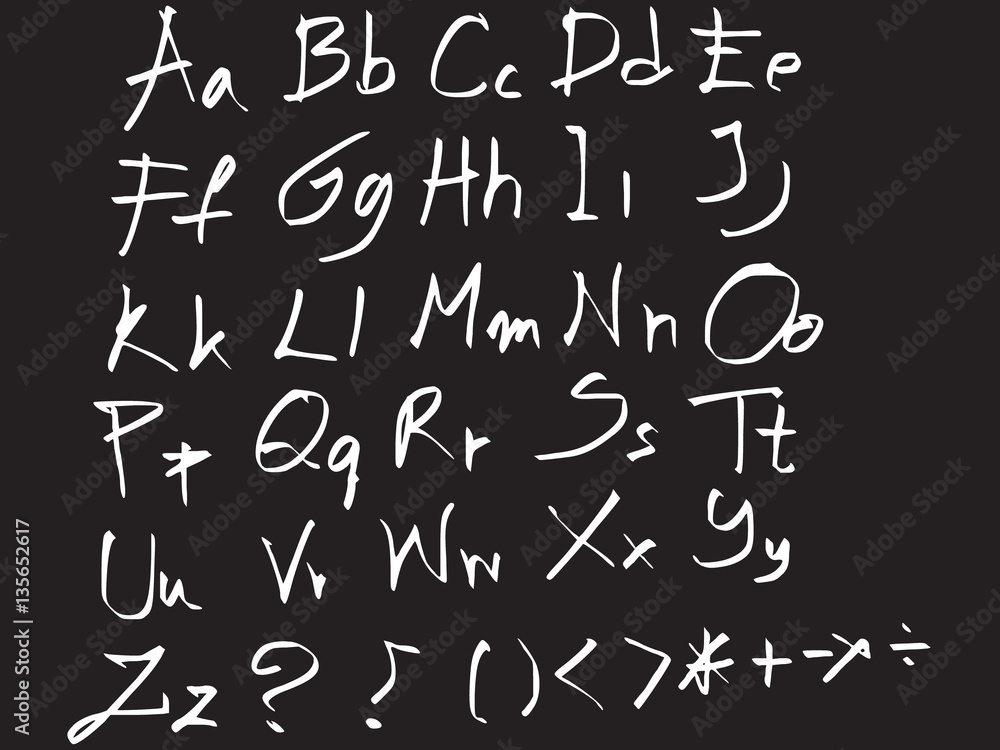 Aa Bb Cc Dd Ee
Ff Gg Hh Ii Jj
Kk Ll Mm Nn Oo
Pp Qq Rr Ss Tt
Uu Vv Ww Xx Yy
Zz ? ! ( ) < > * + - × ÷
Adobe Stock | #135652617